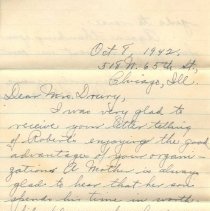 Oct 8, 1942.
518 N. 65th St,
Chicago, Ill.
Dear Mrs. Drury,
I was very glad to
receive your letter telling
of Robert's enjoying the good
advantages of your organi-
zations. A Mother is always
glad to hear that her son
spends his time in worth